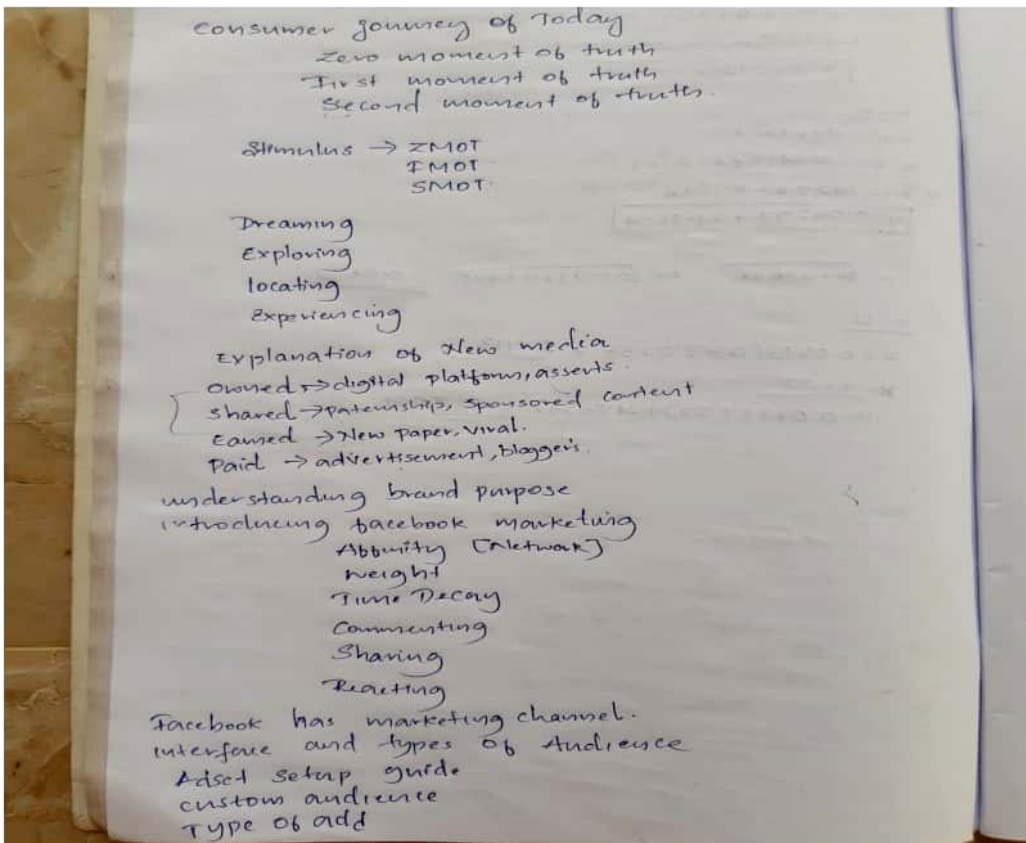 consumer journey of Today
Zero moment of truth
First moment of truth
Second moment of truth.
Stimulus → ZMOT
FMOT
SMOT.
Dreaming
Exploring
locating
Experiencing
Explanation of New media
owned → digital platform, asserts.
shared → paternship, sponsored content
Earned → New paper, viral.
Paid → advertisement, bloggers.
understanding brand purpose
introducing facebook marketing
Affinity [Network]
weight
Time Decay
Commenting
Sharing
Reacting
Facebook has marketing channel.
interface and types of Audience
Adset setup guide
custom audience
Type of add